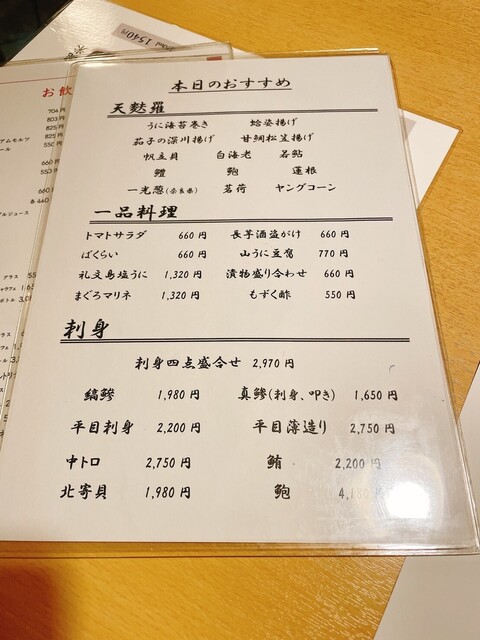 1540円
お飲
704円
803円
825円
825円
550円
660円
550円
660円
各440
本日のおすすめ
天麩羅
うに海苔巻き 蛤姿揚げ
茄子の深川揚げ 甘鯛松笠揚げ
帆立貝 白海老 若鮎
鱧 鮑 蓮根
一光憩(奈良県) 茗荷 ヤングコーン
一品料理
トマトサラダ 660円 長芋酒盗がけ 660円
ばくらい 660円 山うに豆腐 770円
礼文島塩うに 1,320円 漬物盛り合わせ 660円
まぐろマリネ 1,320円 もずく酢 550円
刺身
刺身四点盛合せ 2,970円
縞鯵 1,980円 真鯵(刺身、叩き) 1,650円
平目刺身 2,200円 平目薄造り 2,750円
中トロ 2,750円 鮪 2,200円
北寄貝 1,980円 鮑 4,180円